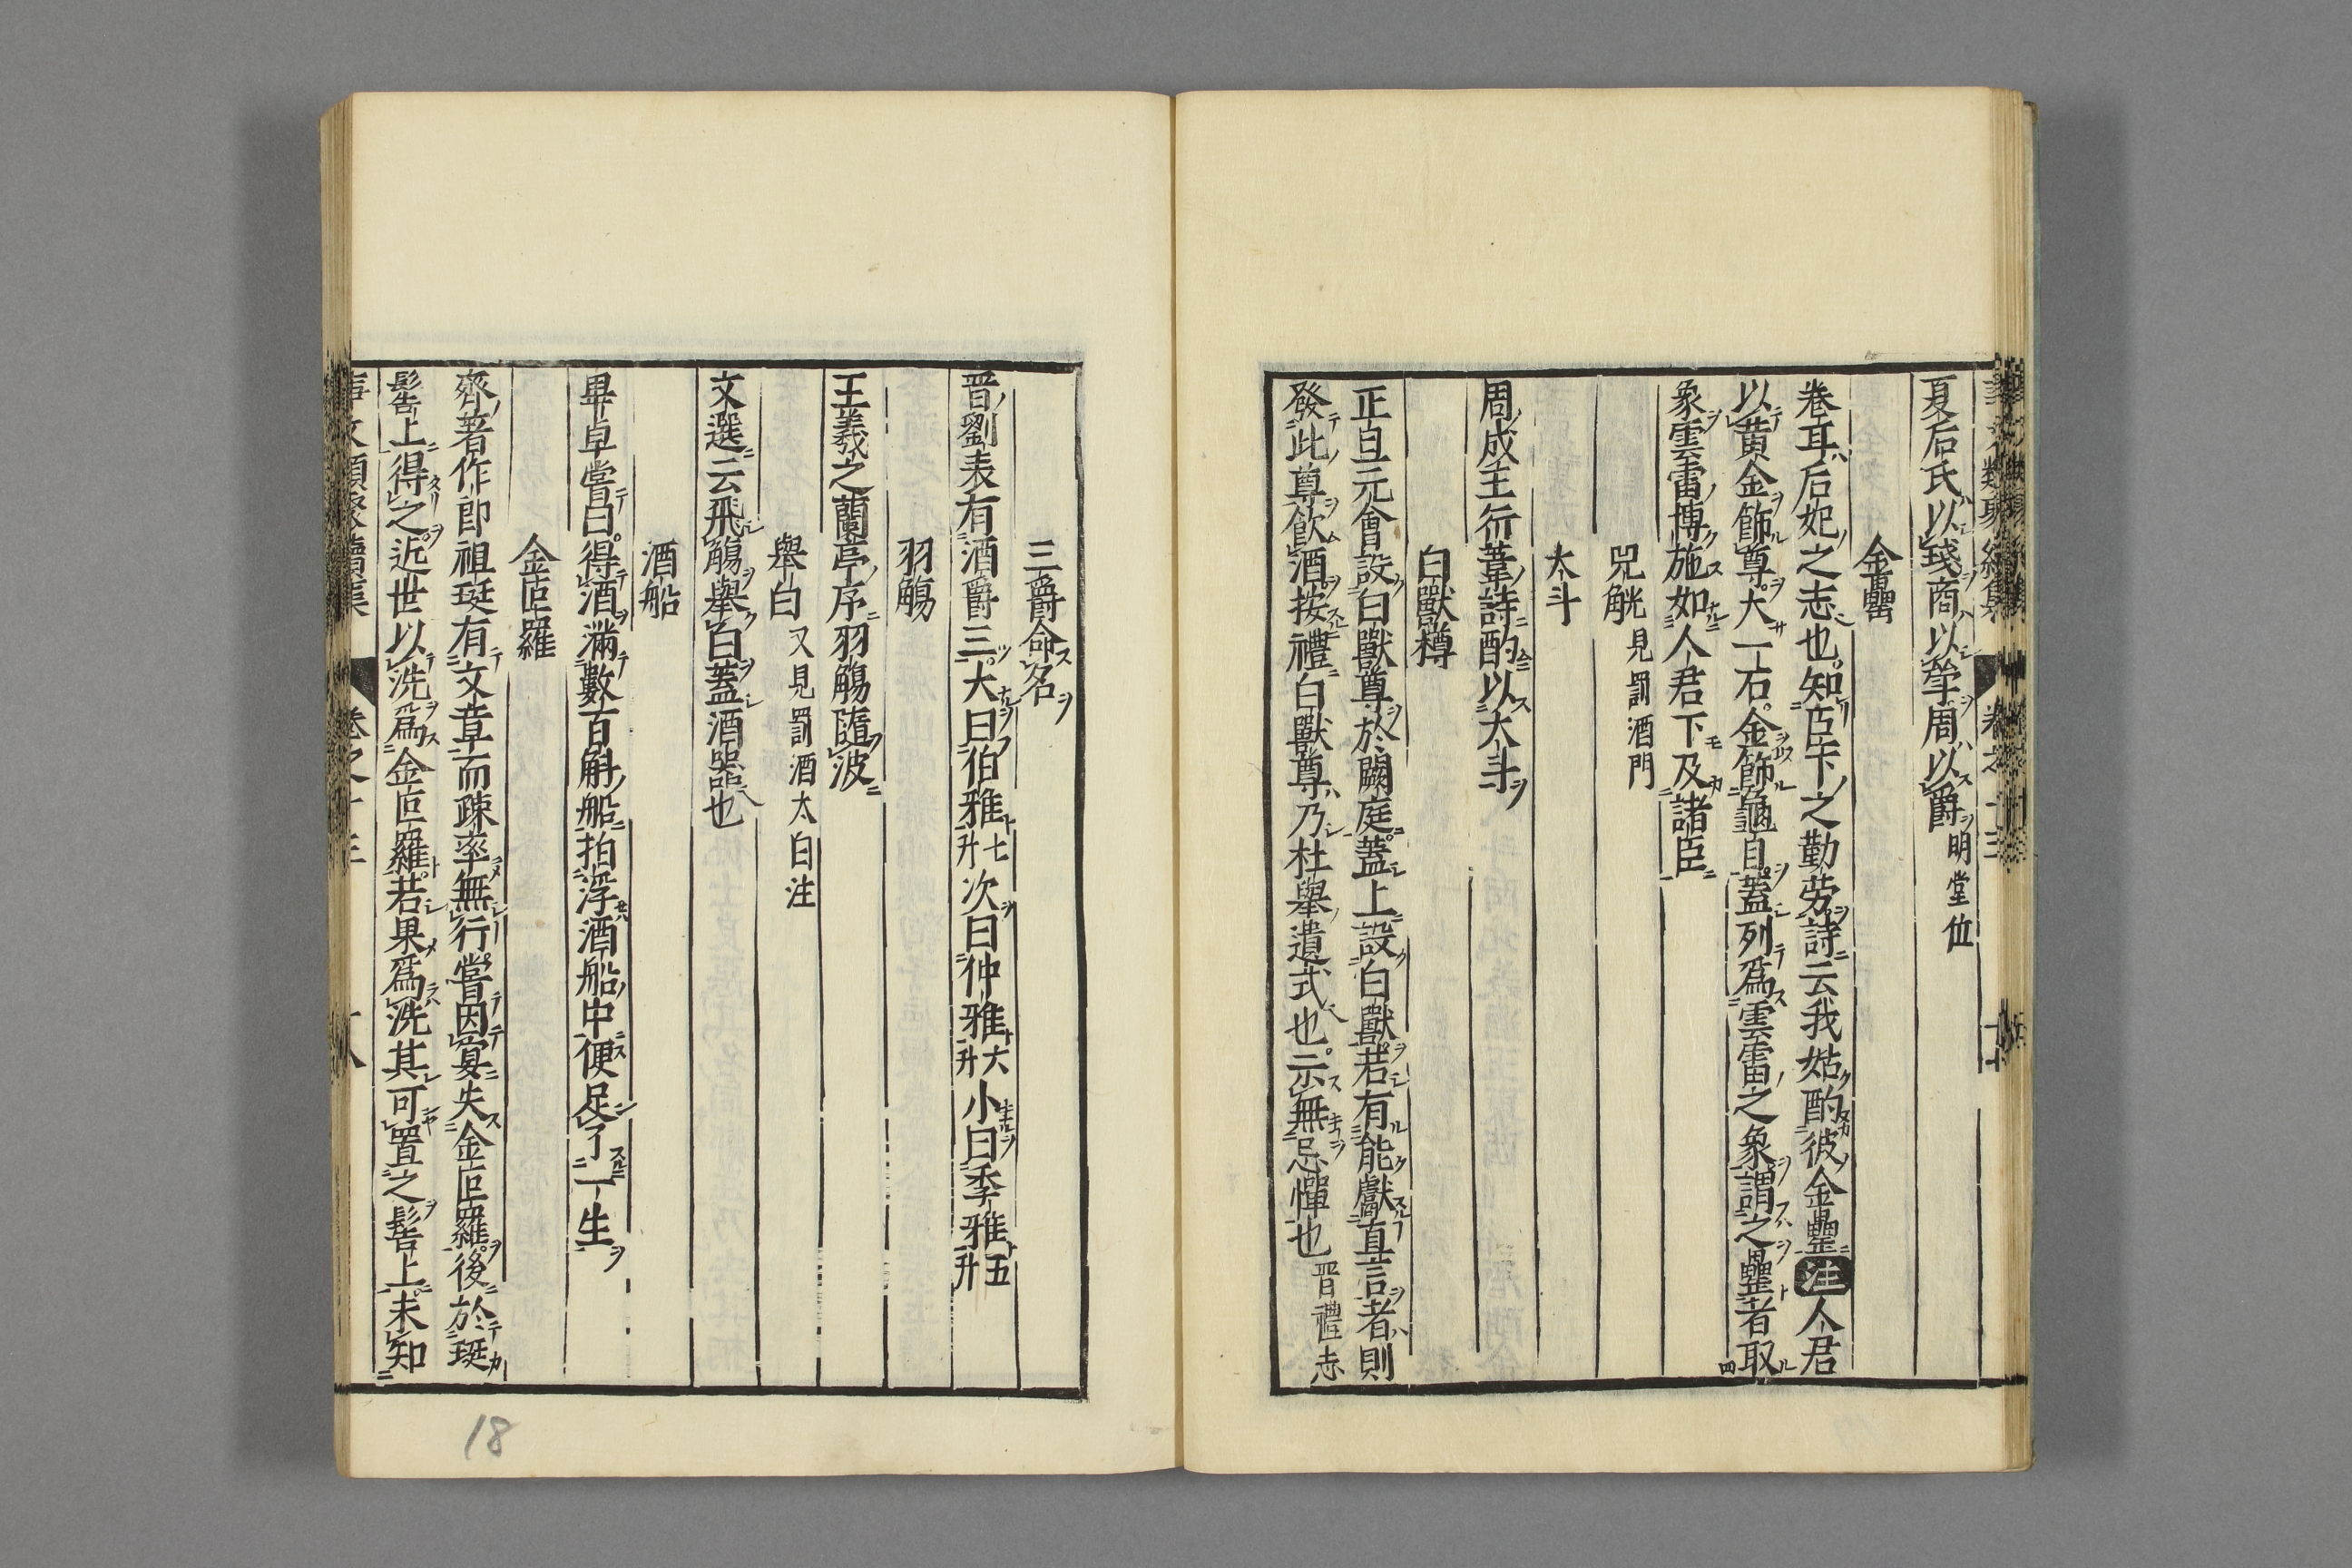 夏后氏以琖商以斝周以爵明堂位
金罍
卷耳后妃之志也知臣下之勤労詩云我姑酌彼金罍注人君
以黄金飾尊大一石金飾龜目蓋列爲雲雷之象謂之罍者取
象雲雷博施如人君下及諸臣
兕觥見罰酒門
太斗
周成王行葦詩酌以大斗
白獸樽
正旦元會設白獸尊於闕庭蓋上設白獸若有能獻直言者則
發此尊飲酒按禮白獸尊乃杜舉遺式也示無忌憚也晋禮志
三爵命名
晋劉表有酒爵三大曰伯雅七升次曰仲雅六升小曰季雅五升
羽觴
王羲之蘭亭序羽觴隨波
舉白又見罰酒太白注
文選云飛觴舉白蓋酒器也
酒船
畢卓嘗曰得酒滿數百斛船拍浮酒船中便足了一生
金叵羅
齊著作郎祖珽有文章而疎率無行嘗因宴失金叵羅後於珽
髻上得之近世以洗爲金叵羅若果爲洗其可置之髻上未知
事文類聚續集 卷之十三 十八
18